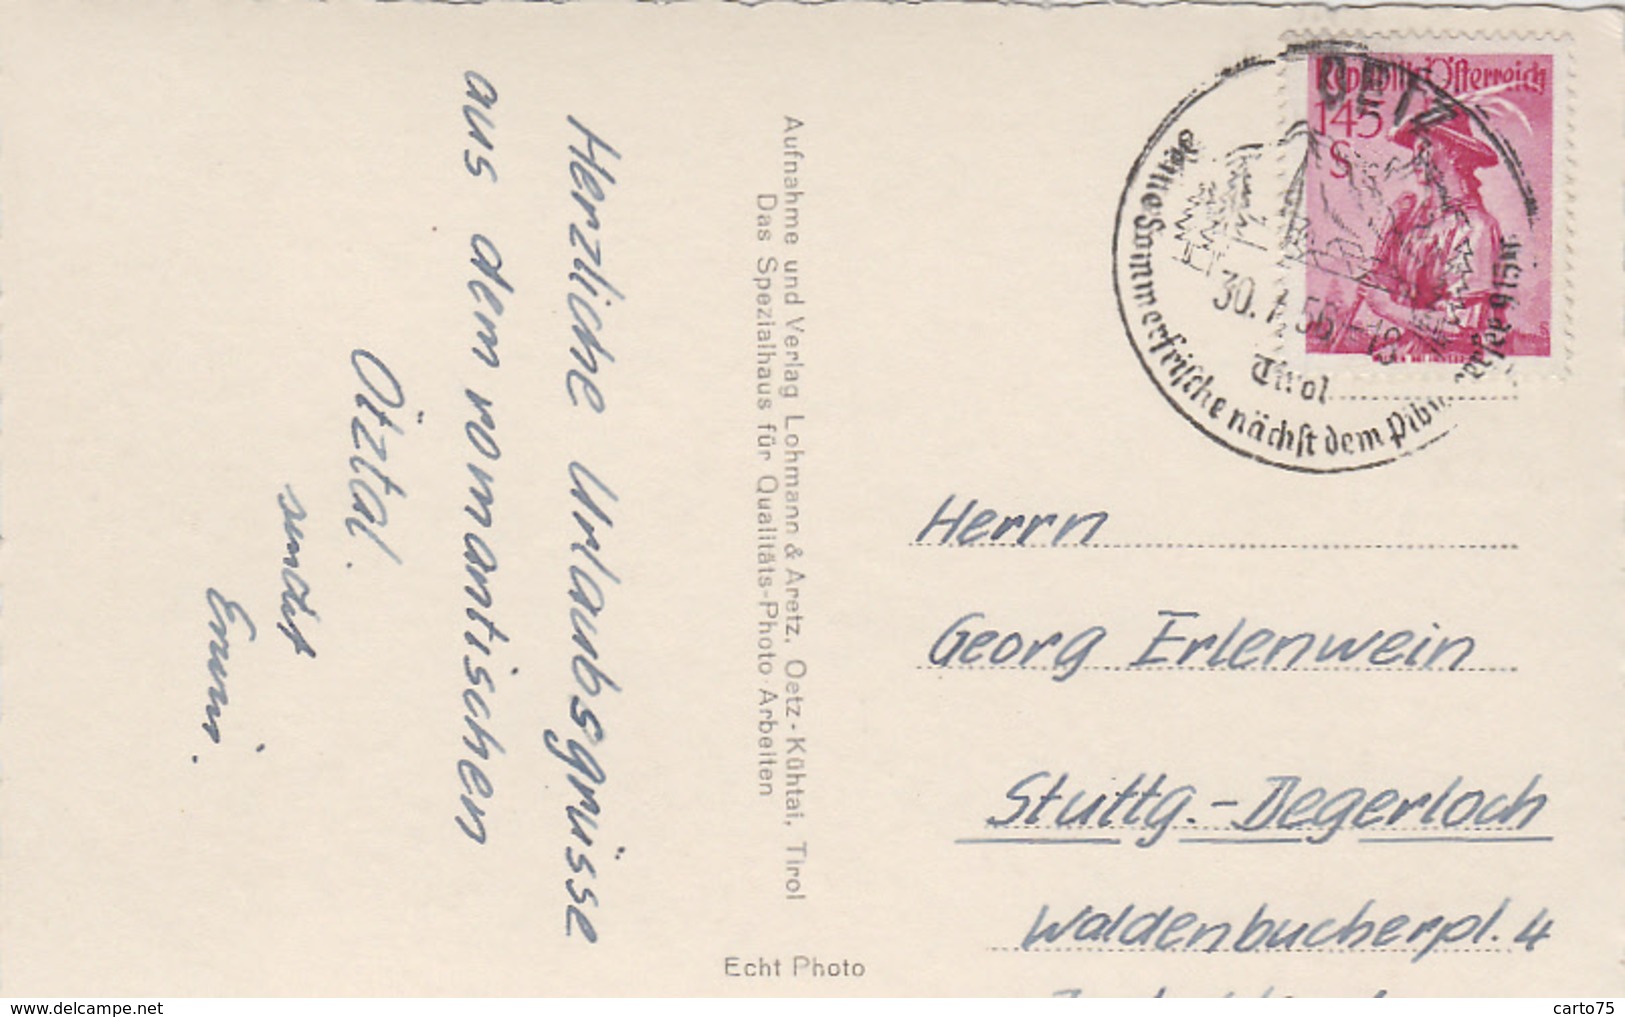 Herzliche Urlaubsgrüsse
aus dem romantischen
Ötztal.
sendet
Aufnahme und Verlag Lohmann & Aretz, Oetz-Kühtai, Tirol
Das Spezialhaus für Qualitäts-Photo-Arbeiten
Echt Photo
Republik Österreich
145
S
OETZ
30.7.56-18
Tirol
Sommerfrische nächst dem
Herrn
Georg Erlenwein
Stuttg.-Degerloch
Waldenbucherpl. 4
delcampe.net
carto75